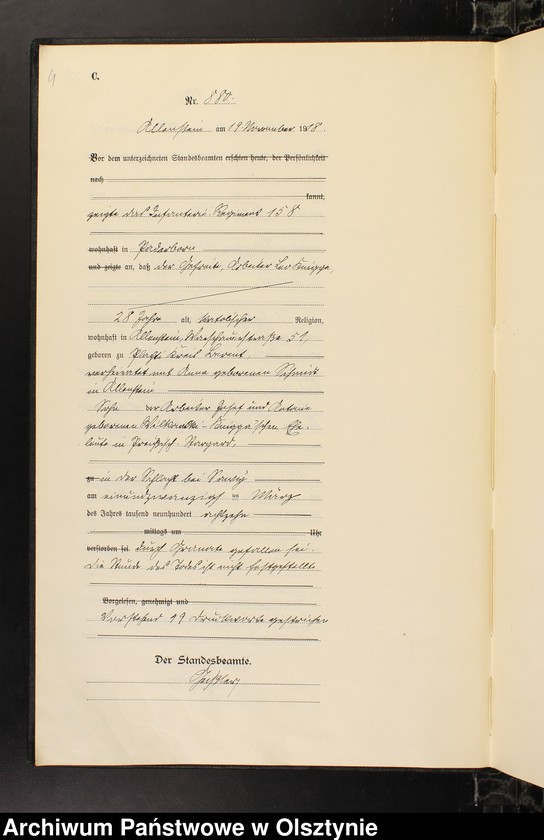 4
C.
Nr. 880.
Allenstein am 19 November 1918.
Vor dem unterzeichneten Standesbeamten erschien heute, der Persönlichkeit
nach
kannt,
zeigte das Infanterie-Regiment 158
wohnhaft in Paderborn
und zeigte an, daß der Gefreite, Arbeiter Leo Knigga,
28 Jahre alt, katholischer Religion,
wohnhaft in Allenstein, Warschauerstraße 51,
geboren zu Kreis Berent,
verheiratet mit Anna geborenen Schmidt
in Allenstein
Sohn der Arbeiter Josef und Antonie
geborenen Knigga'schen Ehe-
leute in Preußisch-Stargard,
zu in der Schlacht bei
am einundzwanzigsten März
des Jahres tausend neunhundert achtzehn
mittags um Uhr
verstorben sei durch Granate gefallen sei.
Die Stunde des Todes ist nicht festgestellt
Vorgelesen, genehmigt und
Vorstehend 19 Druckworte gestrichen
Der Standesbeamte.
Archiwum Państwowe w Olsztynie